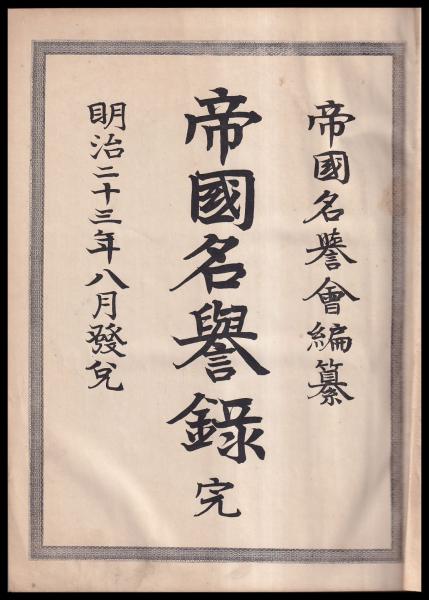 帝國名譽會編纂
帝國名譽錄 完
明治二十三年八月發兌